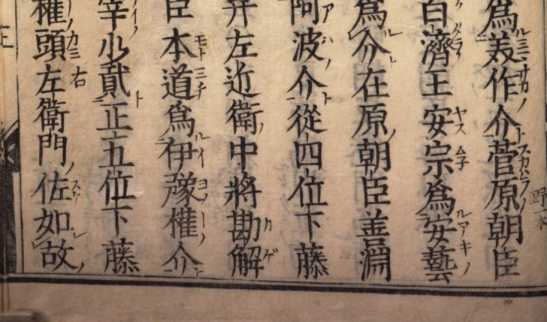 爲美作介菅原朝臣
百濟王安宗爲安藝
爲介在原朝臣善淵
阿波介從四位下藤
幷左近衛中將勘解
臣本道爲伊豫權介
宰少貳正五位下藤
權頭左衛門佐如故